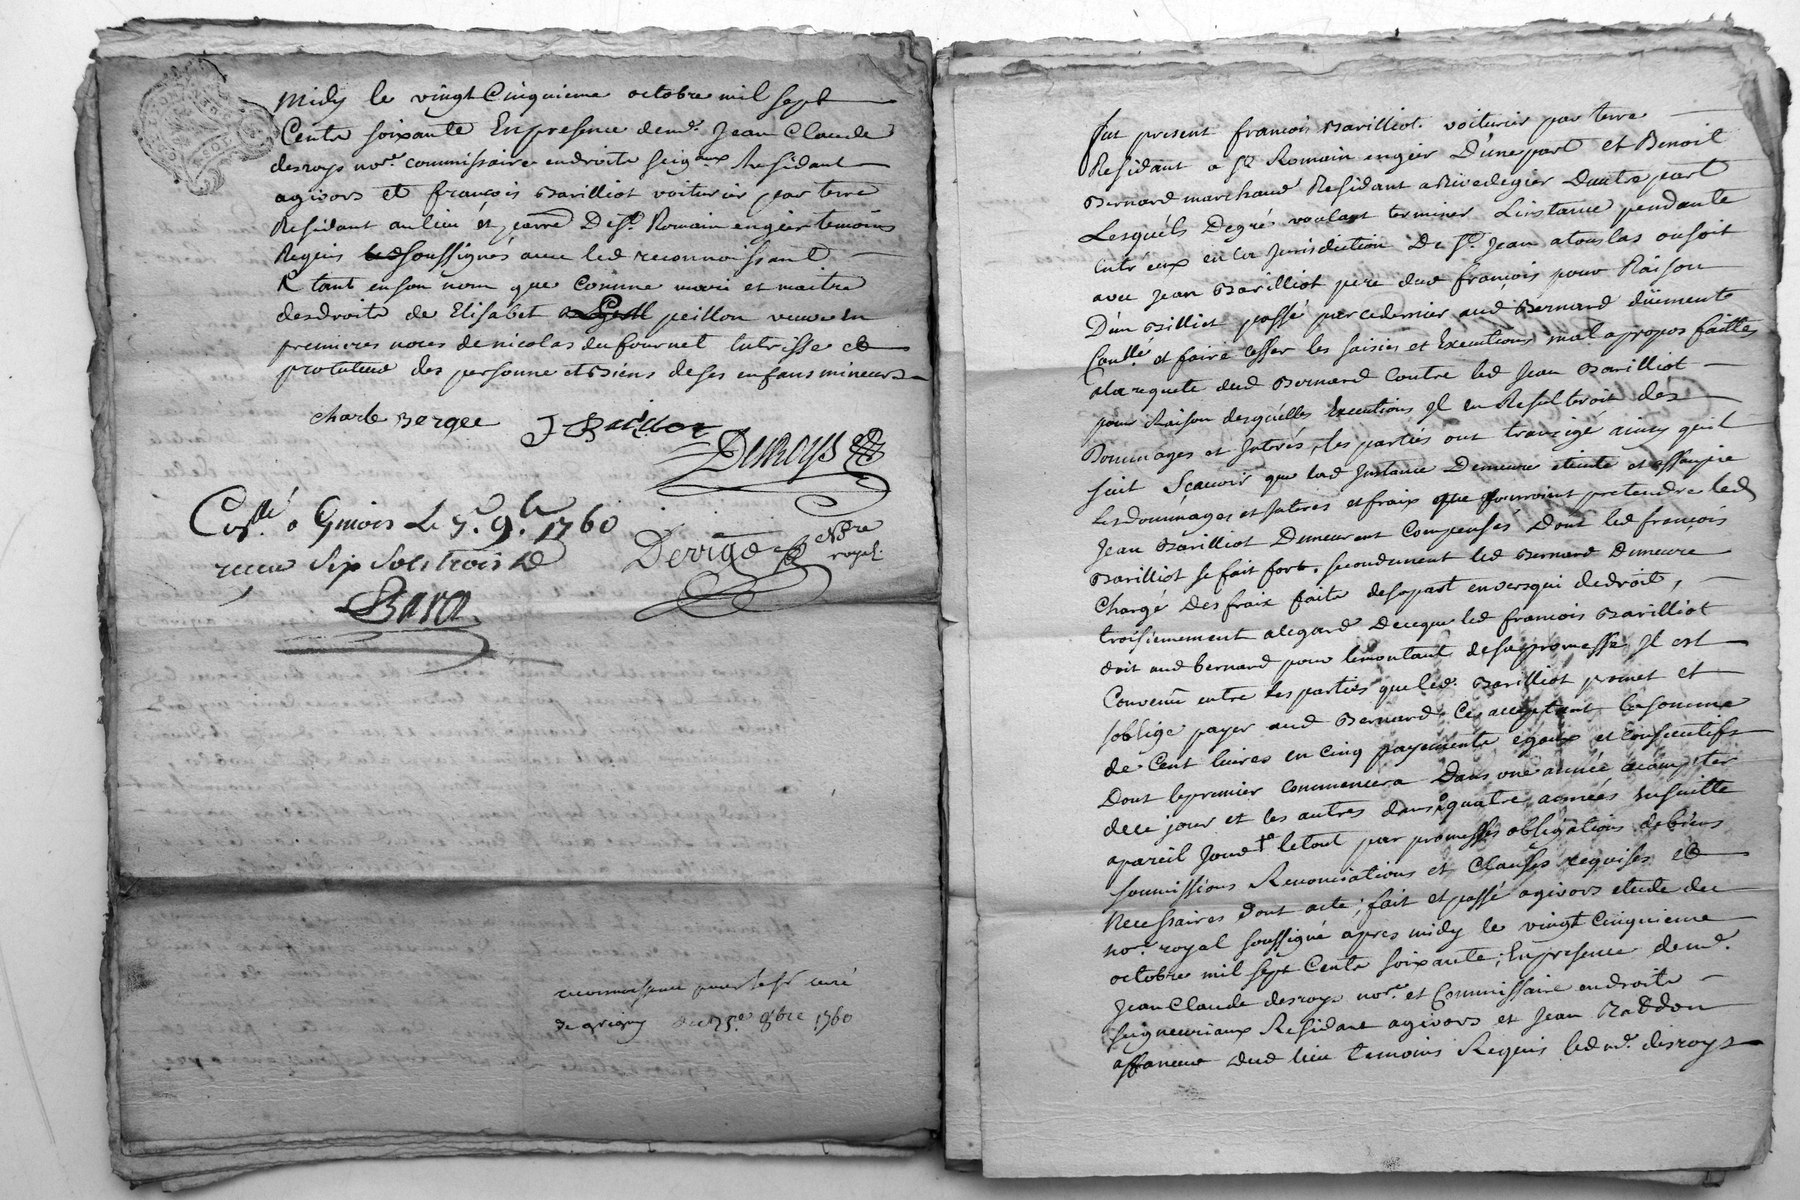 midy le vingt Cinquieme octobre mil sept
Cents soixante En presence de me. Jean Claude
desroys nore. commissaire en droits seigaux Residant
a givors et françois Barilliot voiturier par terre
Residant au lieu et parre. De st. Romain en gier temoins
Requis soussignés avec led reconnoissant
R tant en son nom que comme mari et maitre
des droits de Elisabet peillon veuve en
premieres noces de nicolas du fournel tutrisse et
protuteur des personne et Biens de ses enfans mineurs
charle Berger J Barilliot
Desroys
Conllé a Givors Le 7. 9bre 1760
recu Six Sols trois d
Bara
Derriga Nore royal.
reconnoissance pour le sr curé
de grigny du 25e 8bre 1760
fut present françois Barilliot voiturier par terre
Residant a st Romain en gier D'une part et Benoit
Bernard marchand Residant a Rivedegier Dautre part
Lesquels Degré voulant terminer Linstance pendante
entr eux en la Jurisdiction De st. Jean a touslas ou soit
avec Jean Barilliot pere dud françois pour Raison
D'un Billiet passé par ce dernier aud Bernard düement
Conllé et faire cesser les saisies et Executions mal a propos faittes
a la requete dud Bernard contre led Jean Barilliot
pour Raison desquelles Executions Il en Resulteroit des
Dommages et Interés, les parties ont transigé ainsy quil
suit Sçavoir que lad Instance Demeure éteinte et assoupie
Les dommages et Interes et fraix que pourroint pretendre led
Jean Barilliot Demeurent Compensés Dont led françois
Barilliot se fait fort, secondement led Bernard Demeure
Chargé Des fraix faits de sa part envers qui de droit,
troisiemement a legard De ce que led françois Barilliot
doit aud Bernard pour le montant de sa promesse, Il est
Convenü entre les parties que led. Barilliot promet et
soblige payer aud Bernard Ce acceptant la somme
de Cent livres en cinq payements egaux et consecutifs
Dont le premier commencera Dans une année a compter
de ce jour et les autres dans quatre années Ensuitte
a pareil Jour + le tout par promesses obligations de biens
soumissions Renonciations et Clauses requises et
Necessaires dont acte; fait et passé a givors etude du
nore. royal soussigné apres midy le vingt cinquieme
octobre mil sept Cents soixante; En presence de me.
Jean Claude desroys nore. et Commissaire en droits
seigneuriaux Residant a givors et Jean
affaneur dud lieu temoins Requis led me. desroys